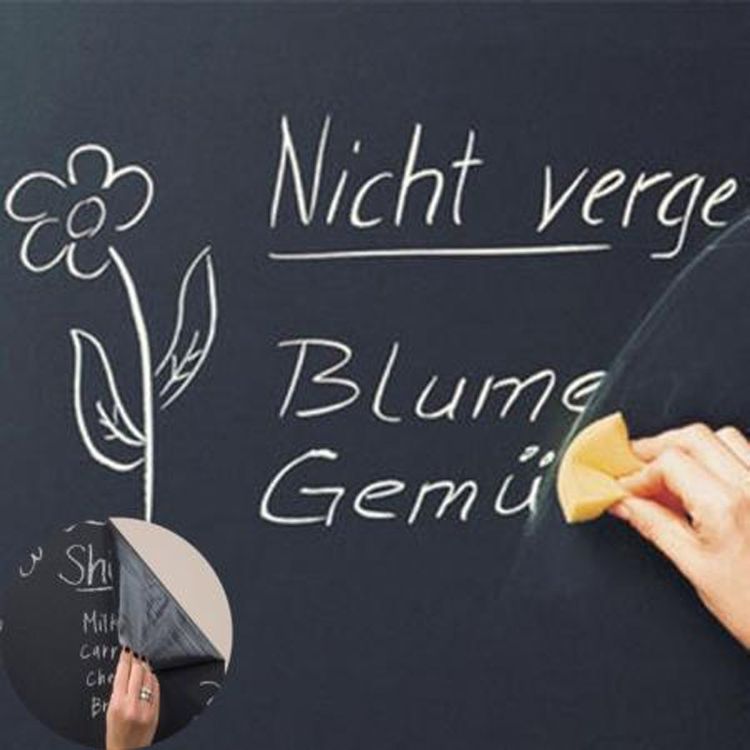 Nicht verge
Blume
Gemü
Shi
Milk
Carr
Che
Br